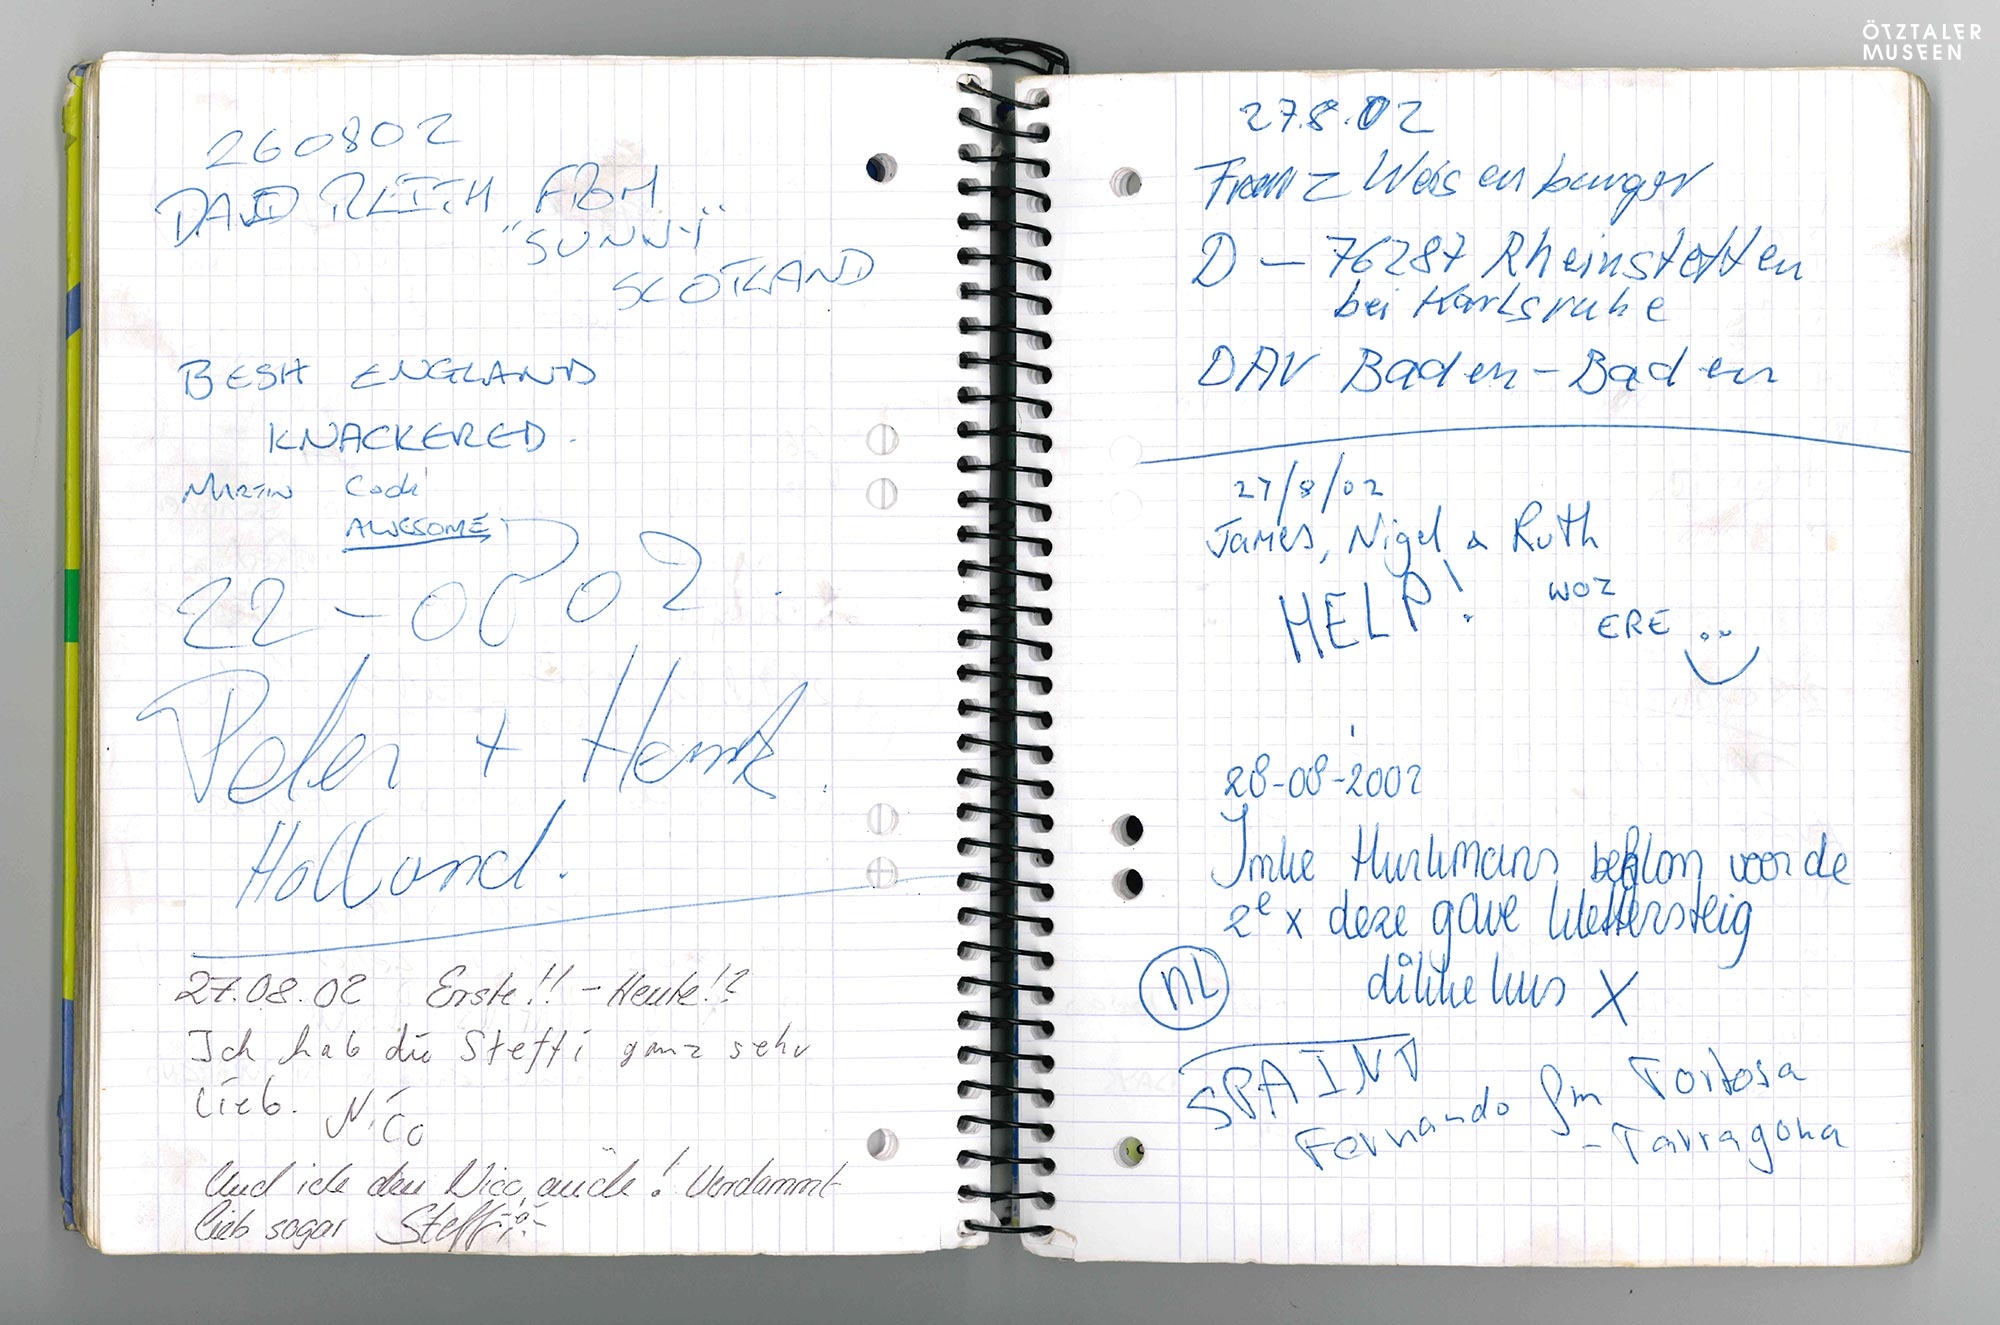 ÖTZTALER
MUSEEN
260802
DAVID REITH FROM
"SUNNY"
SCOTLAND
BESH ENGLAND
KNACKERED.
MARTIN
AWESOME
22-0802.
Peter + Henk.
Holland.
27.08.02 Erste!! - Heute!?
Ich hab die Steffi ganz sehr
lieb. Nico
Und ich den Nico auch! Verdammt
lieb sogar Steffi
27.8.02
Franz Weisenburger
D - 76287 Rheinstetten
bei Karlsruhe
DAV Baden-Baden
27/8/02
James, Nigel & Ruth
HELP! WOZ
ERE
28-08-2002
Imke Hurkmans beklom voor de
2e x deze gave klettersteig
NL dikke kus X
SPAIN
Fernando fm Tortosa
-Tarragona